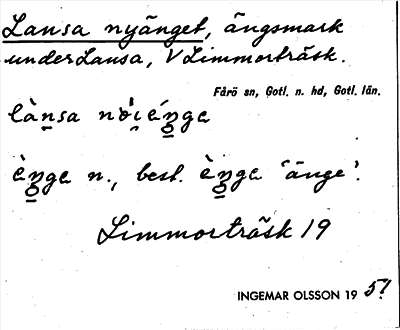 Lansa nyänget, ängsmark
under Lansa, V Limmorträsk.
Fårö sn, Gotl. n. hd, Gotl. län.
làn̲sa
n., best. 'änge'.
Limmorträsk 19
INGEMAR OLSSON 19 51